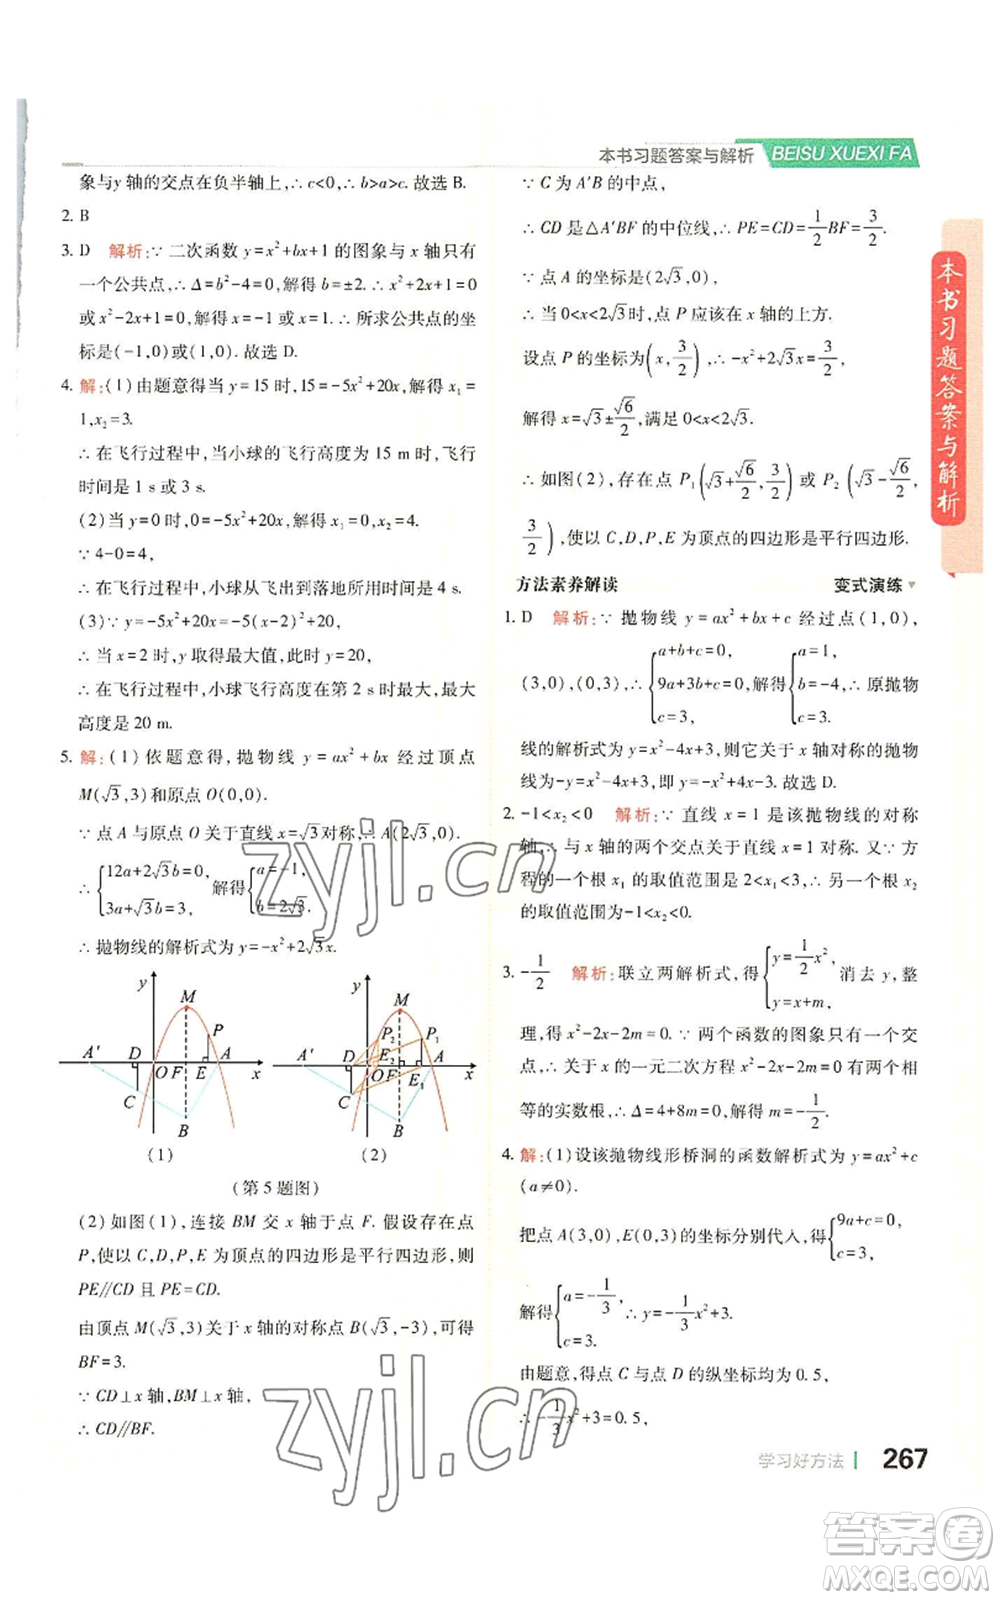 本书习题答案与解析 BEISU XUEXI FA
象与y 轴的交点在负半轴上,∴ c<0,∴ b>a>c. 故选 B.
2. B
3. D 解析:∵ 二次函数 y=x²+bx+1 的图象与 x 轴只有
一个公共点,∴ Δ=b²-4=0,解得 b=±2.∴ x²+2x+1=0
或 x²-2x+1=0,解得 x=-1 或 x=1.∴ 所求公共点的坐
标是(-1,0)或(1,0). 故选 D.
4. 解:(1)由题意得当 y=15 时,15=-5x²+20x,解得 x₁=
1,x₂=3.
∴ 在飞行过程中,当小球的飞行高度为 15 m 时,飞行
时间是 1 s 或 3 s.
(2)当 y=0 时,0=-5x²+20x,解得 x₃=0,x₄=4.
∵ 4-0=4,
∴ 在飞行过程中,小球从飞出到落地所用时间是 4 s.
(3)∵ y=-5x²+20x=-5(x-2)²+20,
∴ 当 x=2 时,y 取得最大值,此时 y=20,
∴ 在飞行过程中,小球飞行高度在第 2 s 时最大,最大
高度是 20 m.
5. 解:(1)依题意得,抛物线 y=ax²+bx 经过顶点
M(√3,3)和原点 O(0,0).
∵ 点 A 与原点 O 关于直线 x=√3对称,∴ A(2√3,0).
∴ {12a+2√3b=0, 3a+√3b=3, 解得 {a=-1, b=2√3.
∴ 抛物线的解析式为 y=-x²+2√3x.
y M P A' D O F E A x C B
(1)
y M P₂ P₁ A' D E₂ O F E₁ A x C B
(2)
(第 5 题图)
(2)如图(1),连接 BM 交 x 轴于点 F. 假设存在点
P,使以 C,D,P,E 为顶点的四边形是平行四边形,则
PE//CD 且 PE=CD.
由顶点 M(√3,3)关于 x 轴的对称点 B(√3,-3),可得
BF=3.
∵ CD⊥x 轴,BM⊥x 轴,
∴ CD//BF.
∵ C 为 A'B 的中点,
∴ CD 是△A'BF 的中位线,∴ PE=CD=1/2BF=3/2.
∵ 点 A 的坐标是(2√3,0),
∴ 当 0<x<2√3时,点 P 应该在 x 轴的上方.
设点 P 的坐标为(x,3/2),∴ -x²+2√3x=3/2,
解得 x=√3±√6/2,满足 0<x<2√3.
∴ 如图(2),存在点 P₁(√3+√6/2,3/2)或 P₂(√3-√6/2,
3/2),使以 C,D,P,E 为顶点的四边形是平行四边形.
方法素养解读 变式演练
1. D 解析:∵ 抛物线 y=ax²+bx+c 经过点(1,0),
(3,0),(0,3),∴ {a+b+c=0, 9a+3b+c=0, c=3, 解得 {a=1, b=-4, c=3, ∴ 原抛物
线的解析式为 y=x²-4x+3,则它关于 x 轴对称的抛物
线为-y=x²-4x+3,即 y=-x²+4x-3. 故选 D.
2. -1<x₂<0 解析:∵ 直线 x=1 是该抛物线的对称
轴,∴ 与 x 轴的两个交点关于直线 x=1 对称. 又∵ 方
程的一个根 x₁ 的取值范围是 2<x₁<3,∴ 另一个根 x₂
的取值范围为-1<x₂<0.
3. -1/2 解析:联立两解析式,得 {y=1/2x², y=x+m, 消去 y,整
理,得 x²-2x-2m=0.∵ 两个函数的图象只有一个交
点,∴ 关于 x 的一元二次方程 x²-2x-2m=0 有两个相
等的实数根,∴ Δ=4+8m=0,解得 m=-1/2.
4. 解:(1)设该抛物线形桥洞的函数解析式为 y=ax²+c
(a≠0).
把点 A(3,0),E(0,3)的坐标分别代入,得 {9a+c=0, c=3,
解得 {a=-1/3, c=3. ∴ y=-1/3x²+3.
由题意,得点 C 与点 D 的纵坐标均为 0.5,
∴ -1/3x²+3=0.5,
学习好方法 267
本书习题答案与解析
zyjl.cn
zyjl.cn
答案卷
MXQE.COM